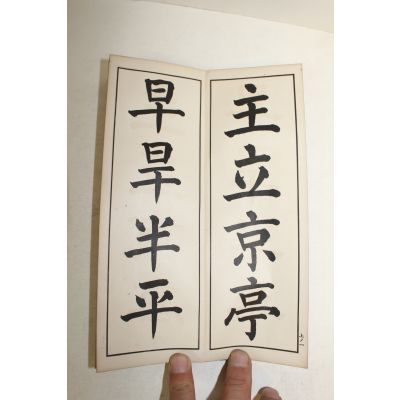 主立京亭
早旱半平